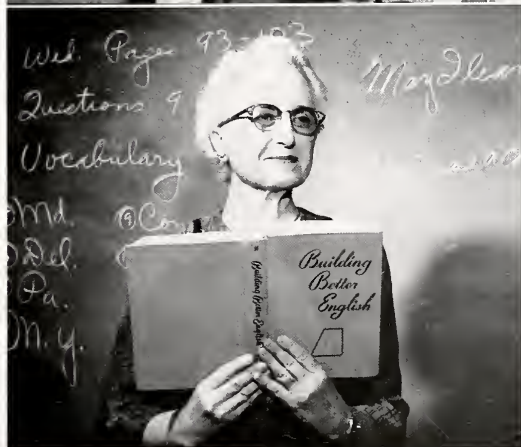 Wed. Page 93-103
Questions 9
Vocabulary
Md.
Del.
Pa.
N.Y.
Building
Better
English
Building Better English